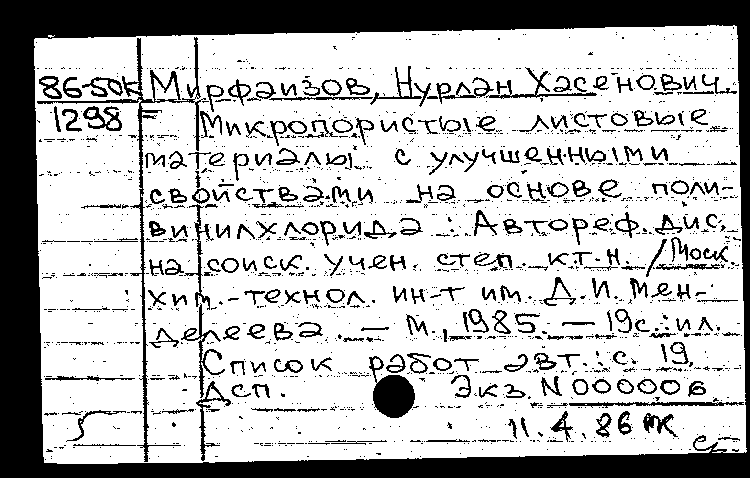 86-50к Мирфаизов, Нурлан Хасенович.
1298 = Микропористые листовые
материалы с улучшенными
свойствами на основе поли-
винилхлорида : Автореф. дис.
на соиск. учен. степ. к.т.н. / Моск.
хим.-технол. ин-т им. Д.И. Мен-
делеева. — М., 1985. — 19с.: ил.
Список работ авт.: с. 19.
Дсп. Экз. N 000006
11.4.86